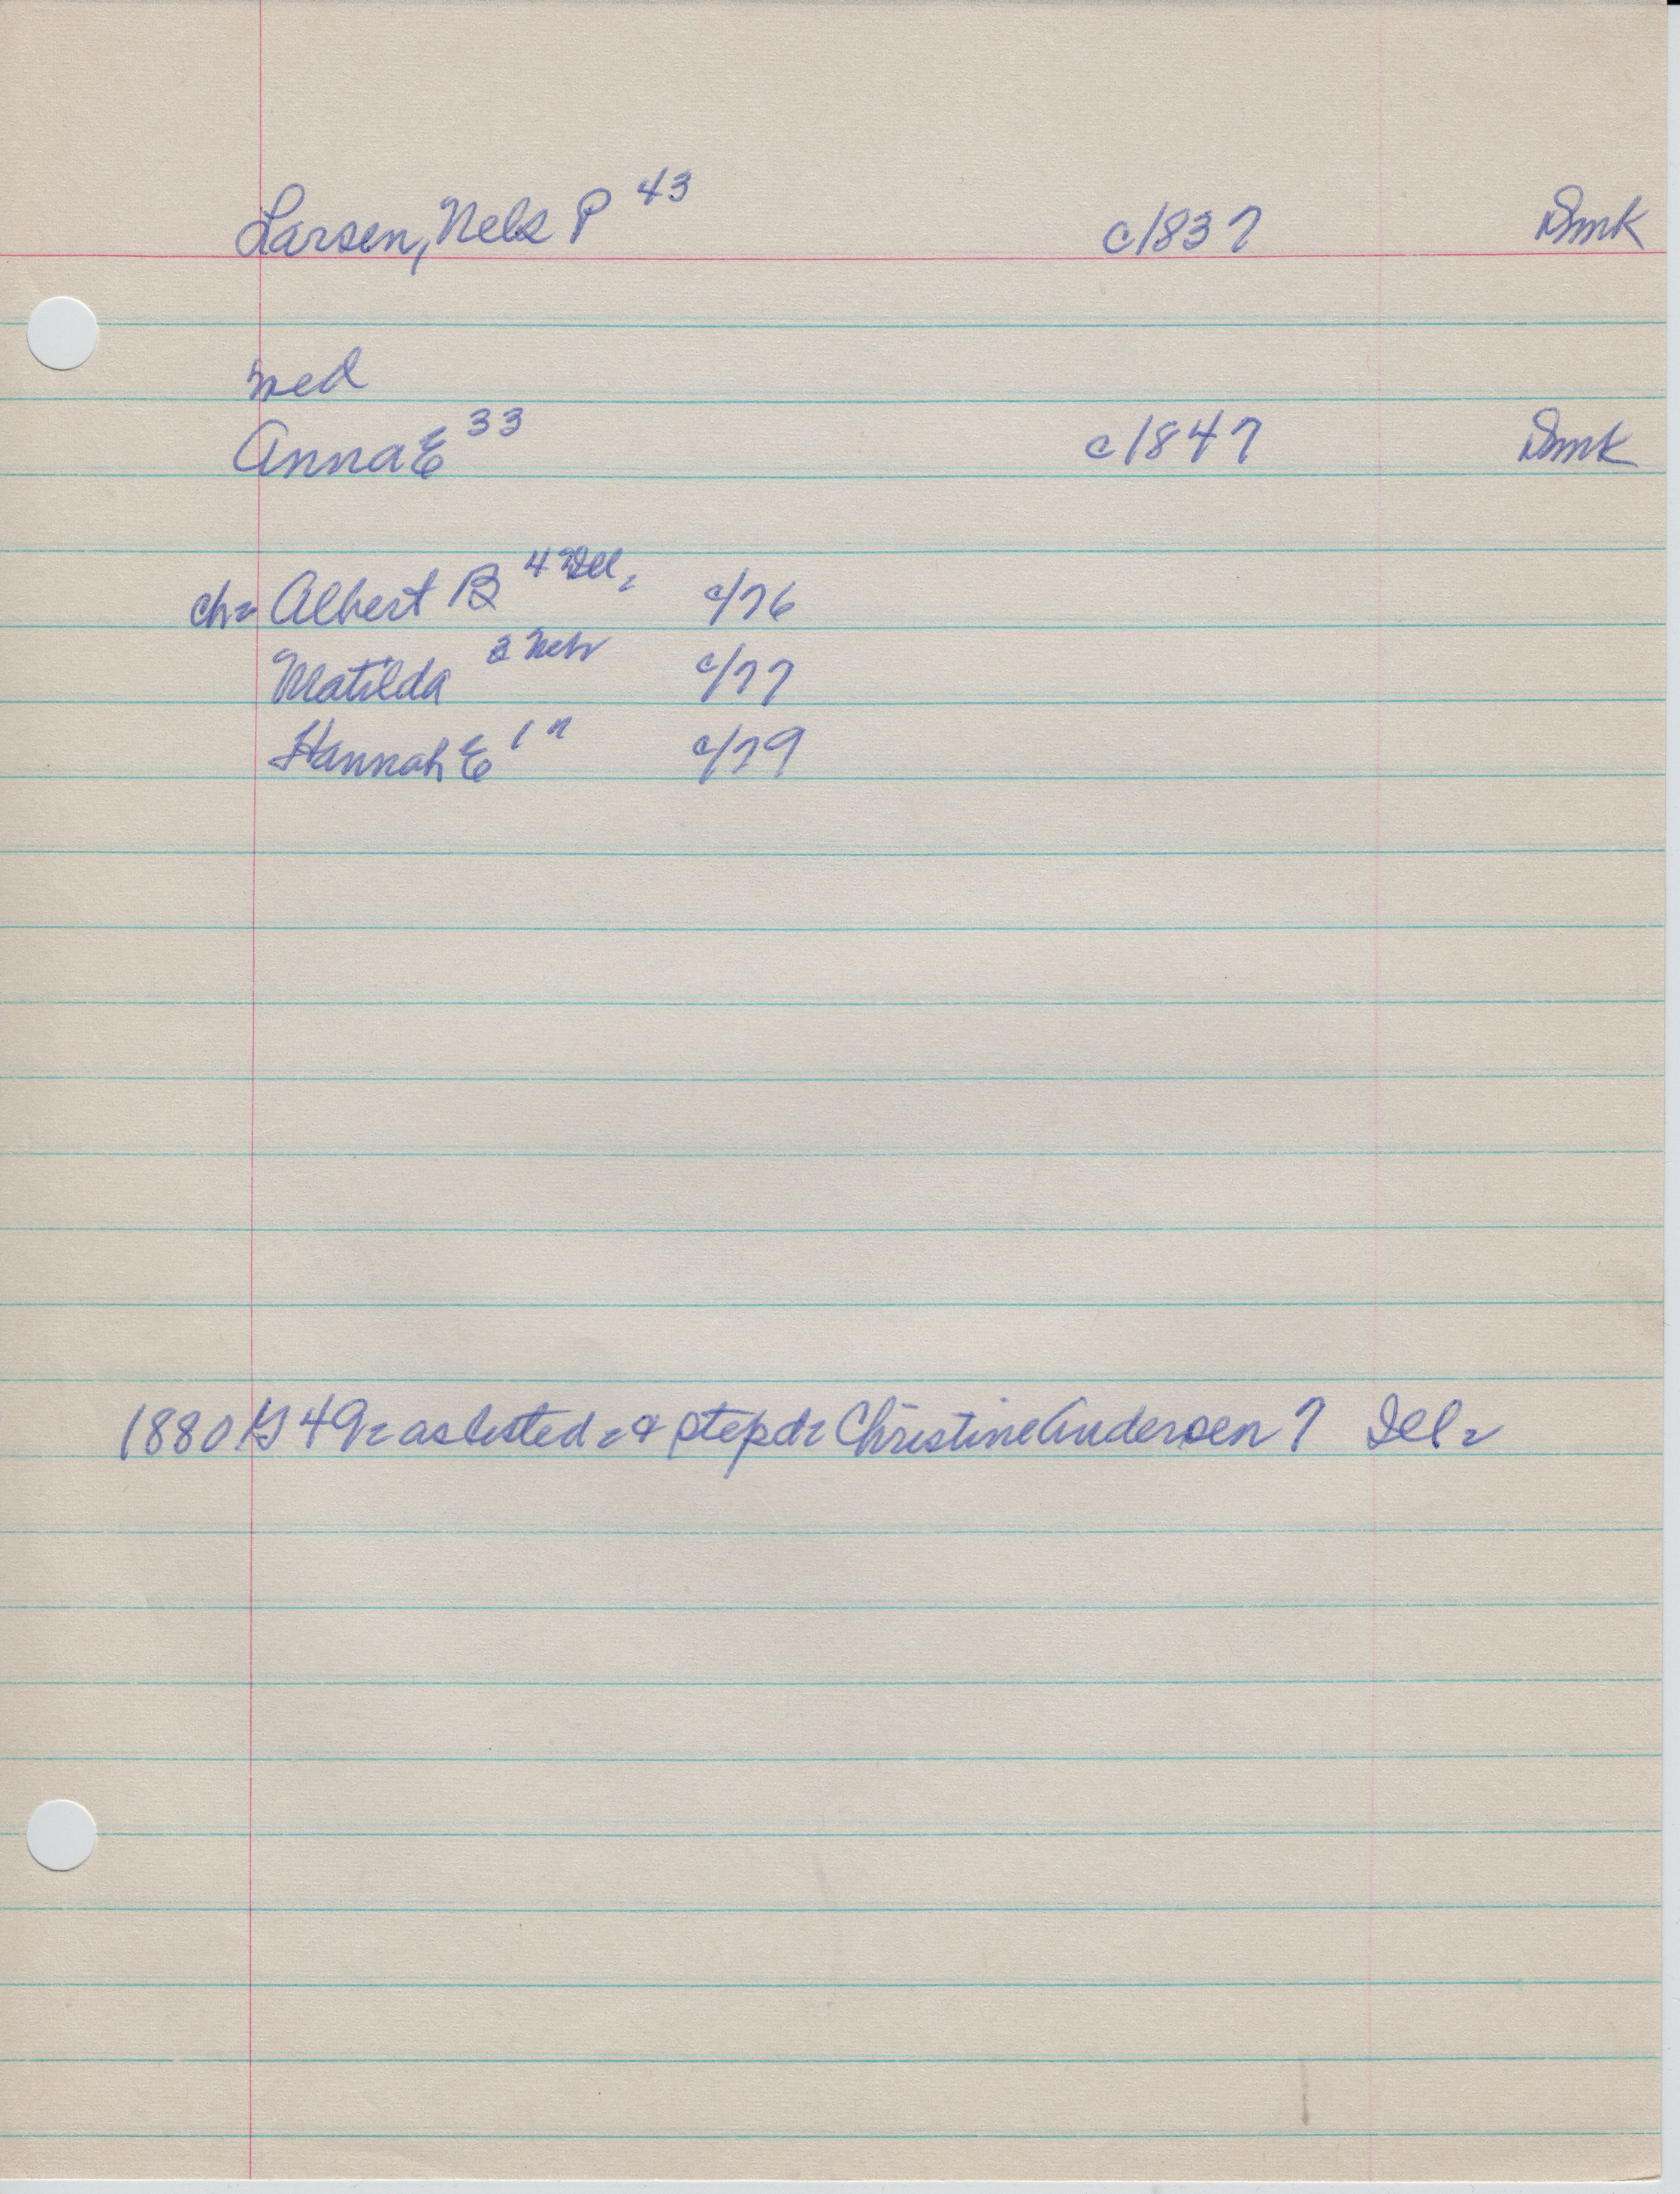 Larsen, Nels P 43 c/837 Dmk
med
Anna E 33 c/847 Dmk
ch= Albert B 4 Ill, c/76
Matilda 3 Neb c/77
Hannah E 1 " c/79
1880 49= as listed= & stepd= Christine Andersen 7 Ill=